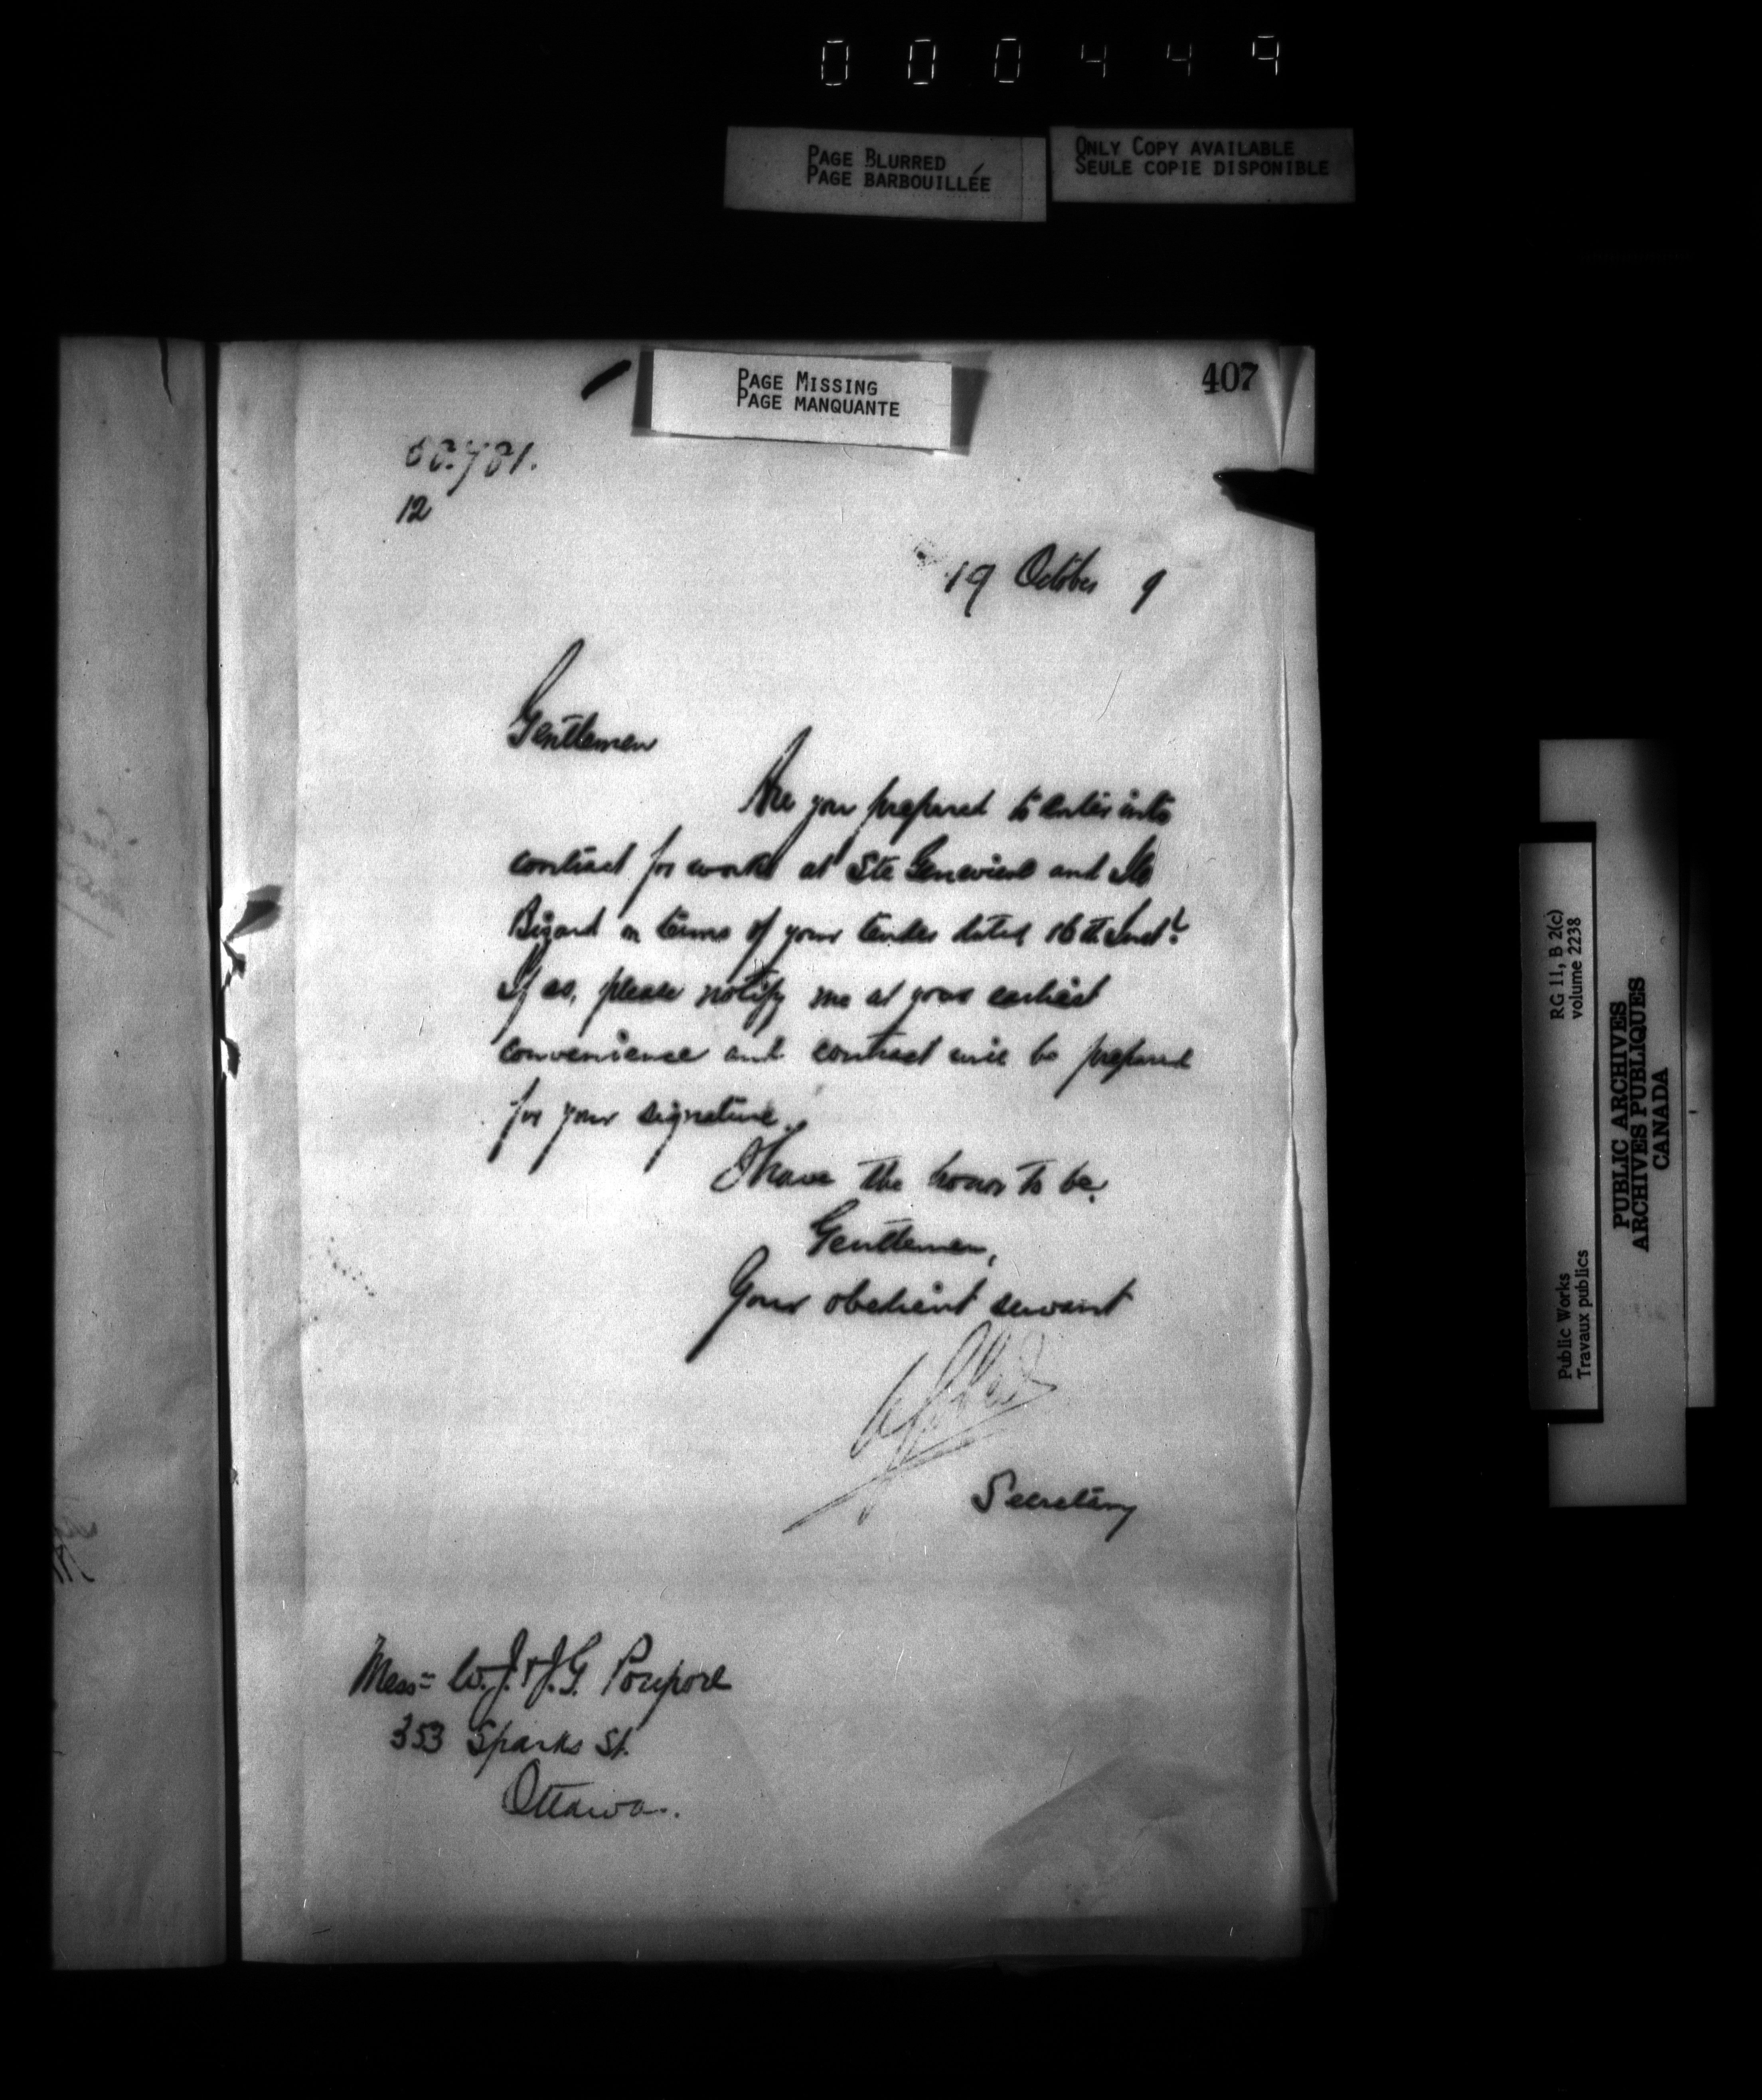 000449
PAGE BLURRED
PAGE BARBOUILLÉE
ONLY COPY AVAILABLE
SEULE COPIE DISPONIBLE
PAGE MISSING
PAGE MANQUANTE
407
12
19 October 9
Gentlemen
Are you prepared to enter into
contract for works at Ste Genevieve and Ile
Bizard on terms of your tender dated 16th Inst?
If so, please notify me at your earliest
convenience and contract will be prepared
for your signature.
I have the honor to be,
Gentlemen,
Your obedient servant
Secretary
Mess= W.J. & J.G. Poupore
353 Sparks St.
Ottawa.
RG 11, B 2(c)
volume 2238
Public Works
Travaux publics
PUBLIC ARCHIVES
ARCHIVES PUBLIQUES
CANADA